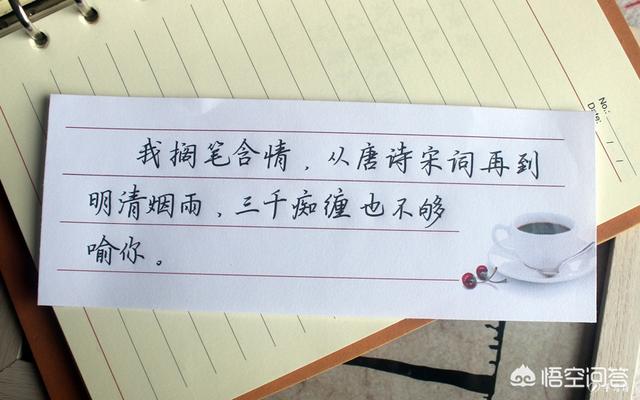 我搁笔含情，从唐诗宋词再到
明清烟雨，三千痴缠也不够
喻你。
No:
Date:
悟空问答